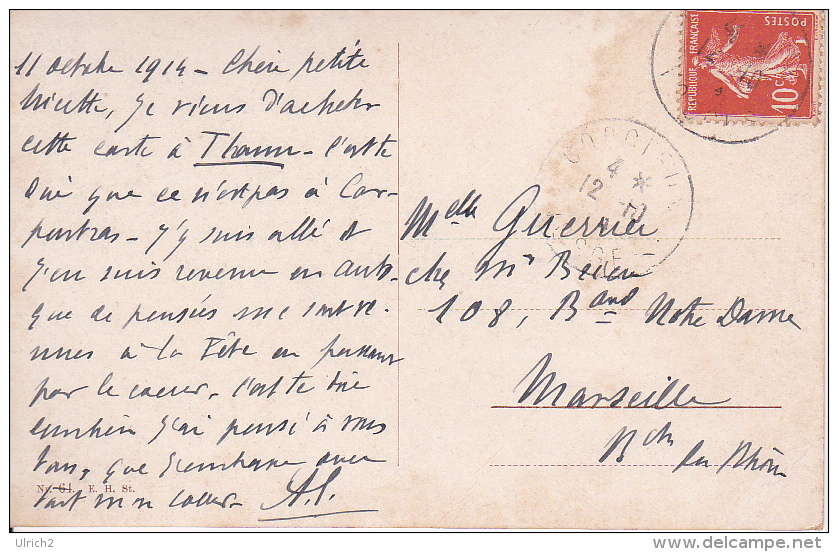 11 octobre 1914 - Chère petite
Ninette, je viens d'acheter
cette carte à Thann - c'est te
dire que ce n'est pas à Car-
pentras - j'y suis allé et
j'en suis revenu en auto -
que de pensées me sont ve-
nues à la tête en passant
par le cœur - c'est te dire
combien j'ai pensé à vous
tous, que j'embrasse avec
tout mon cœur - A.P.
No. 64. E. H. St.
RÉPUBLIQUE FRANÇAISE
POSTES
10c
4 *
12 - 10
VOSGES
Melle Guerrier
chez Mr
108, Bard Notre Dame
Marseille
Bches du Rhône
Ulrich2
www.delcampe.net